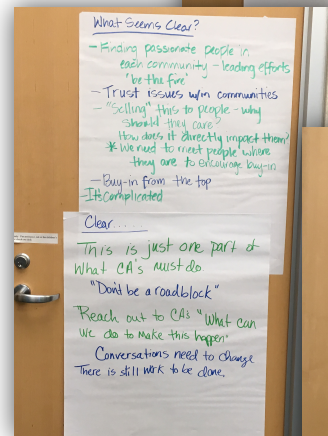 What Seems Clear?
- Finding passionate people in
each community - leading efforts
"be the fire"
- Trust issues w/in communities
- "Selling" this to people - why
should they care?
How does it directly impact them?
* We need to meet people where
they are to encourage buy-in
- Buy-in from the top
- It's complicated
Clear.....
This is just one part of
what CA's must do
"Don't be a roadblock"
"Reach out to CA's "What can
we do to make this happen"
Conversations need to change
There is still work to be done.